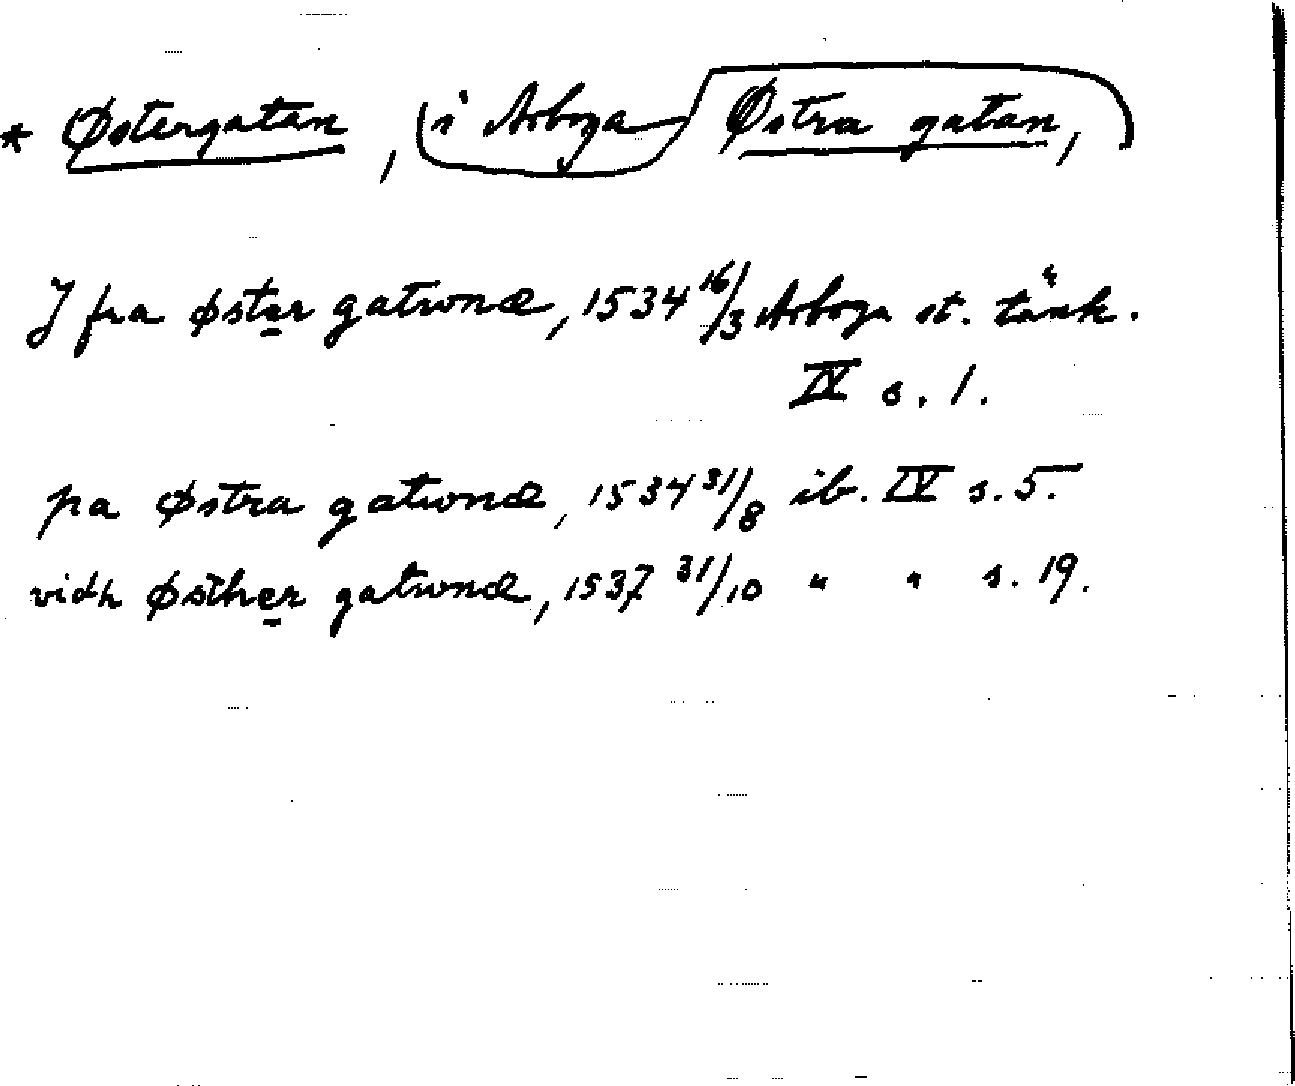 * Østergatan, i Arboga Østra gatan,
J fra øster gatwonæ, 1534 16/3 Arboga st. tänk.
IV s. 1.
pa Østra gatwonæ, 1534 31/8 ib. IV s. 5.
vidh Østher gatwonæ, 1537 31/10 " " s. 19.